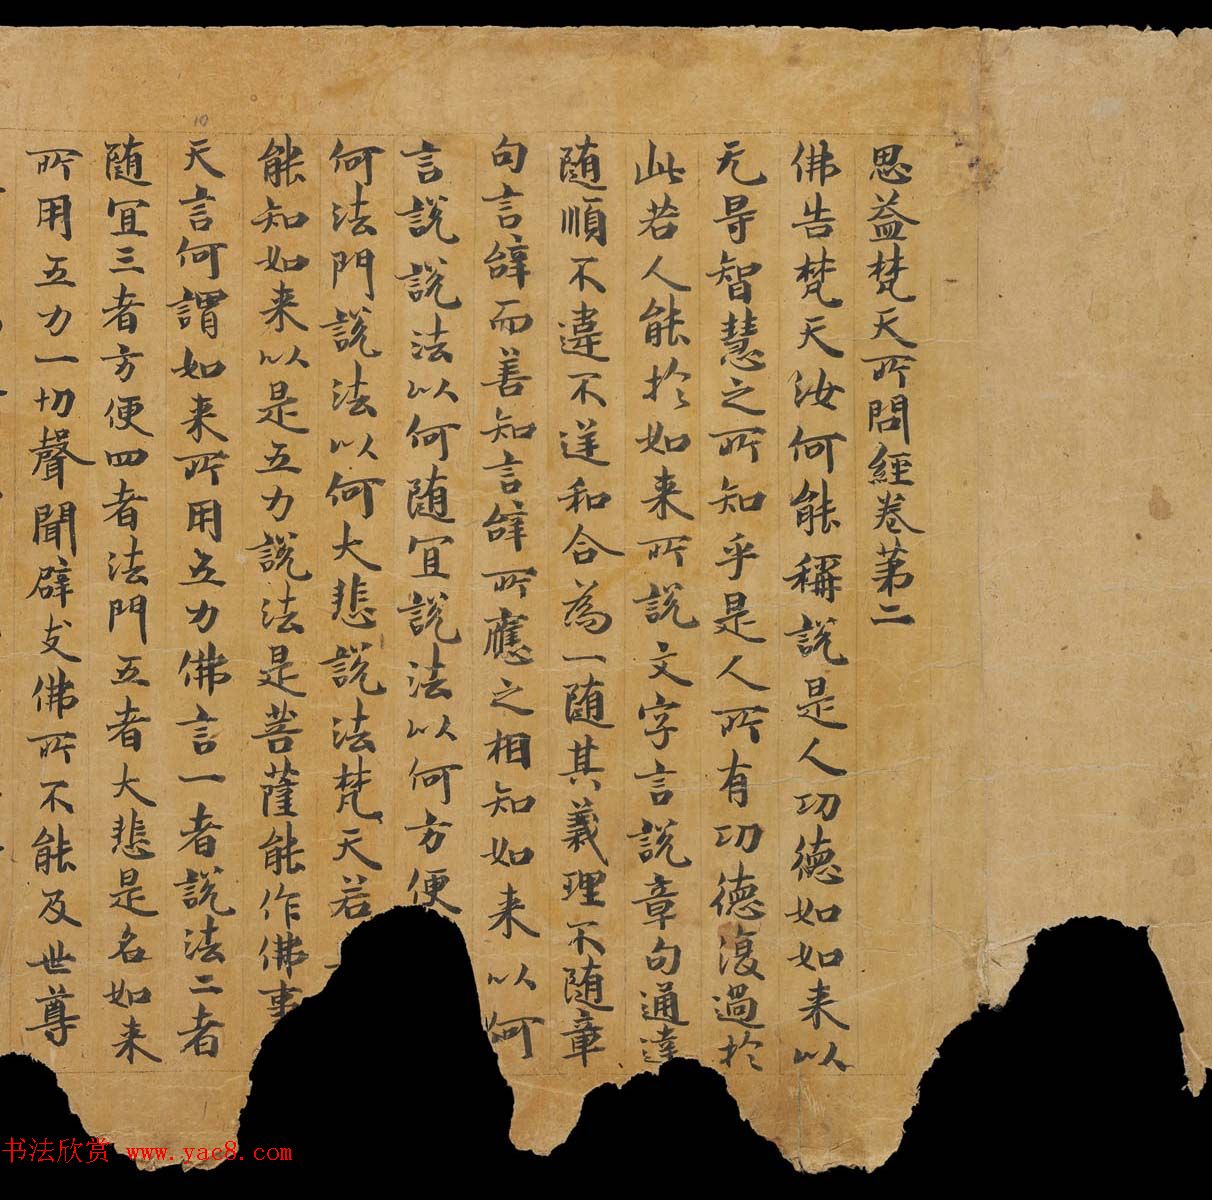 思益梵天所問經卷第二
佛告梵天汝何能稱說是人功德如如来以
无㝵智慧之所知乎是人所有功德復過於
此若人能於如来所說文字言說章句通達
随順不違不逆和合為一随其義理不随章
句言辝而善知言辝所應之相知如来以何
言說說法以何随冝說法以何方便
何法門說法以何大悲說法梵天若
能知如来以是五力說法是菩薩能作佛事
天言何謂如来所用五力佛言一者說法二者
随冝三者方便四者法門五者大悲是名如来
所用五力一切聲聞辟支佛所不能及世尊
10
书法欣赏 www.yac8.com